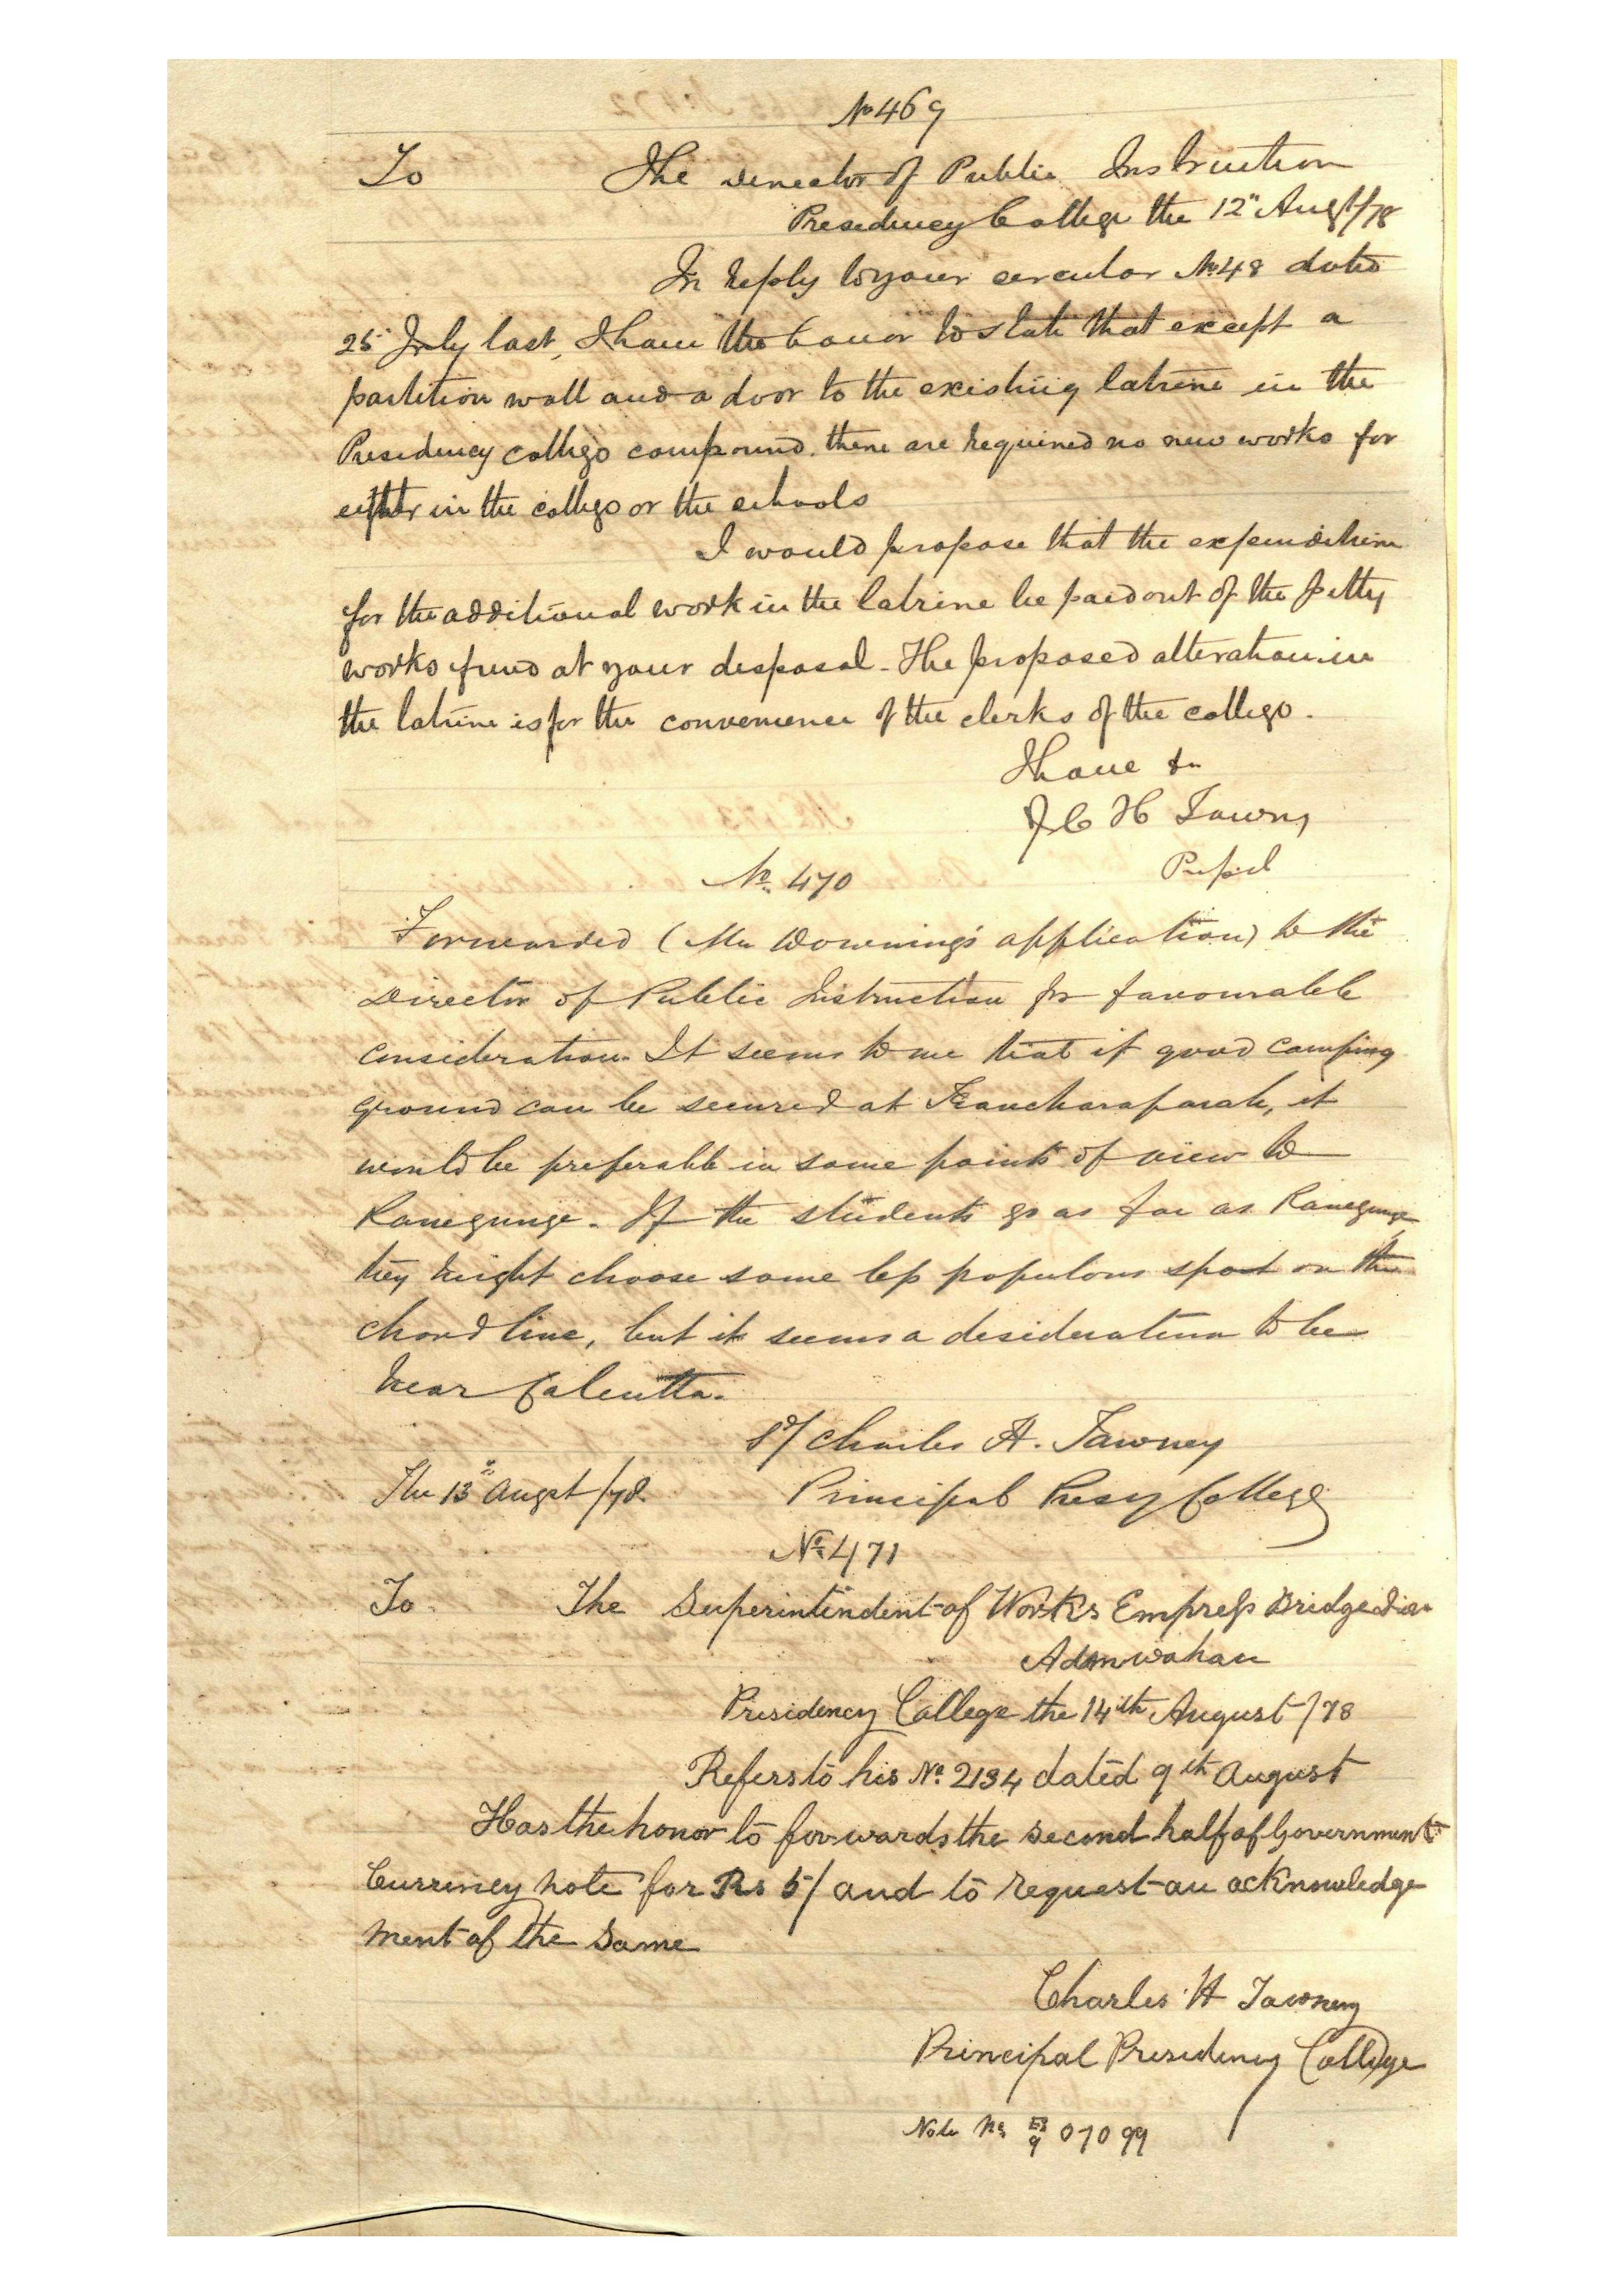 No 469
To The Director of Public Instruction
Presidency College the 12" Augt/78
In reply to your circular No 48 dated
25" July last, I have the honor to state that except a
partition wall and a door to the existing latrine in the
Presidency college compound. there are required no new works for
either in the college or the schools
I would propose that the expenditure
for the additional work in the latrine be paid out of the petty
works fund at your disposal - The proposed alteration in
the latrine is for the convenience of the clerks of the college.
I have &c
C H Tawney
No. 470
Forwarded (Mr Downing's application) to the
Director of Public Instruction for favourable
consideration. It seems to me that if good camping
ground can be secured at Kancharaparah, it
would be preferable in some points of view to
Raneegunge. If the students go as far as Raneegunge
they might choose some less populous spot on the
chord line, but it seems a desideratum to be
near Calcutta.
Sd/ Charles H. Tawney
The 13th Augst /78. Principal Presy College
No. 471
To. The Superintendent of Works Empress Bridge Divn
Adamwahan
Presidency College the 14th August /78
Refers to his No. 2134 dated 9th August
Has the honor to forwards the second half of Government
Currency note for Rs 5/ and to request an acknowledge
ment of the same
Charles H Tawney
Principal Presidency College
Note No 07099